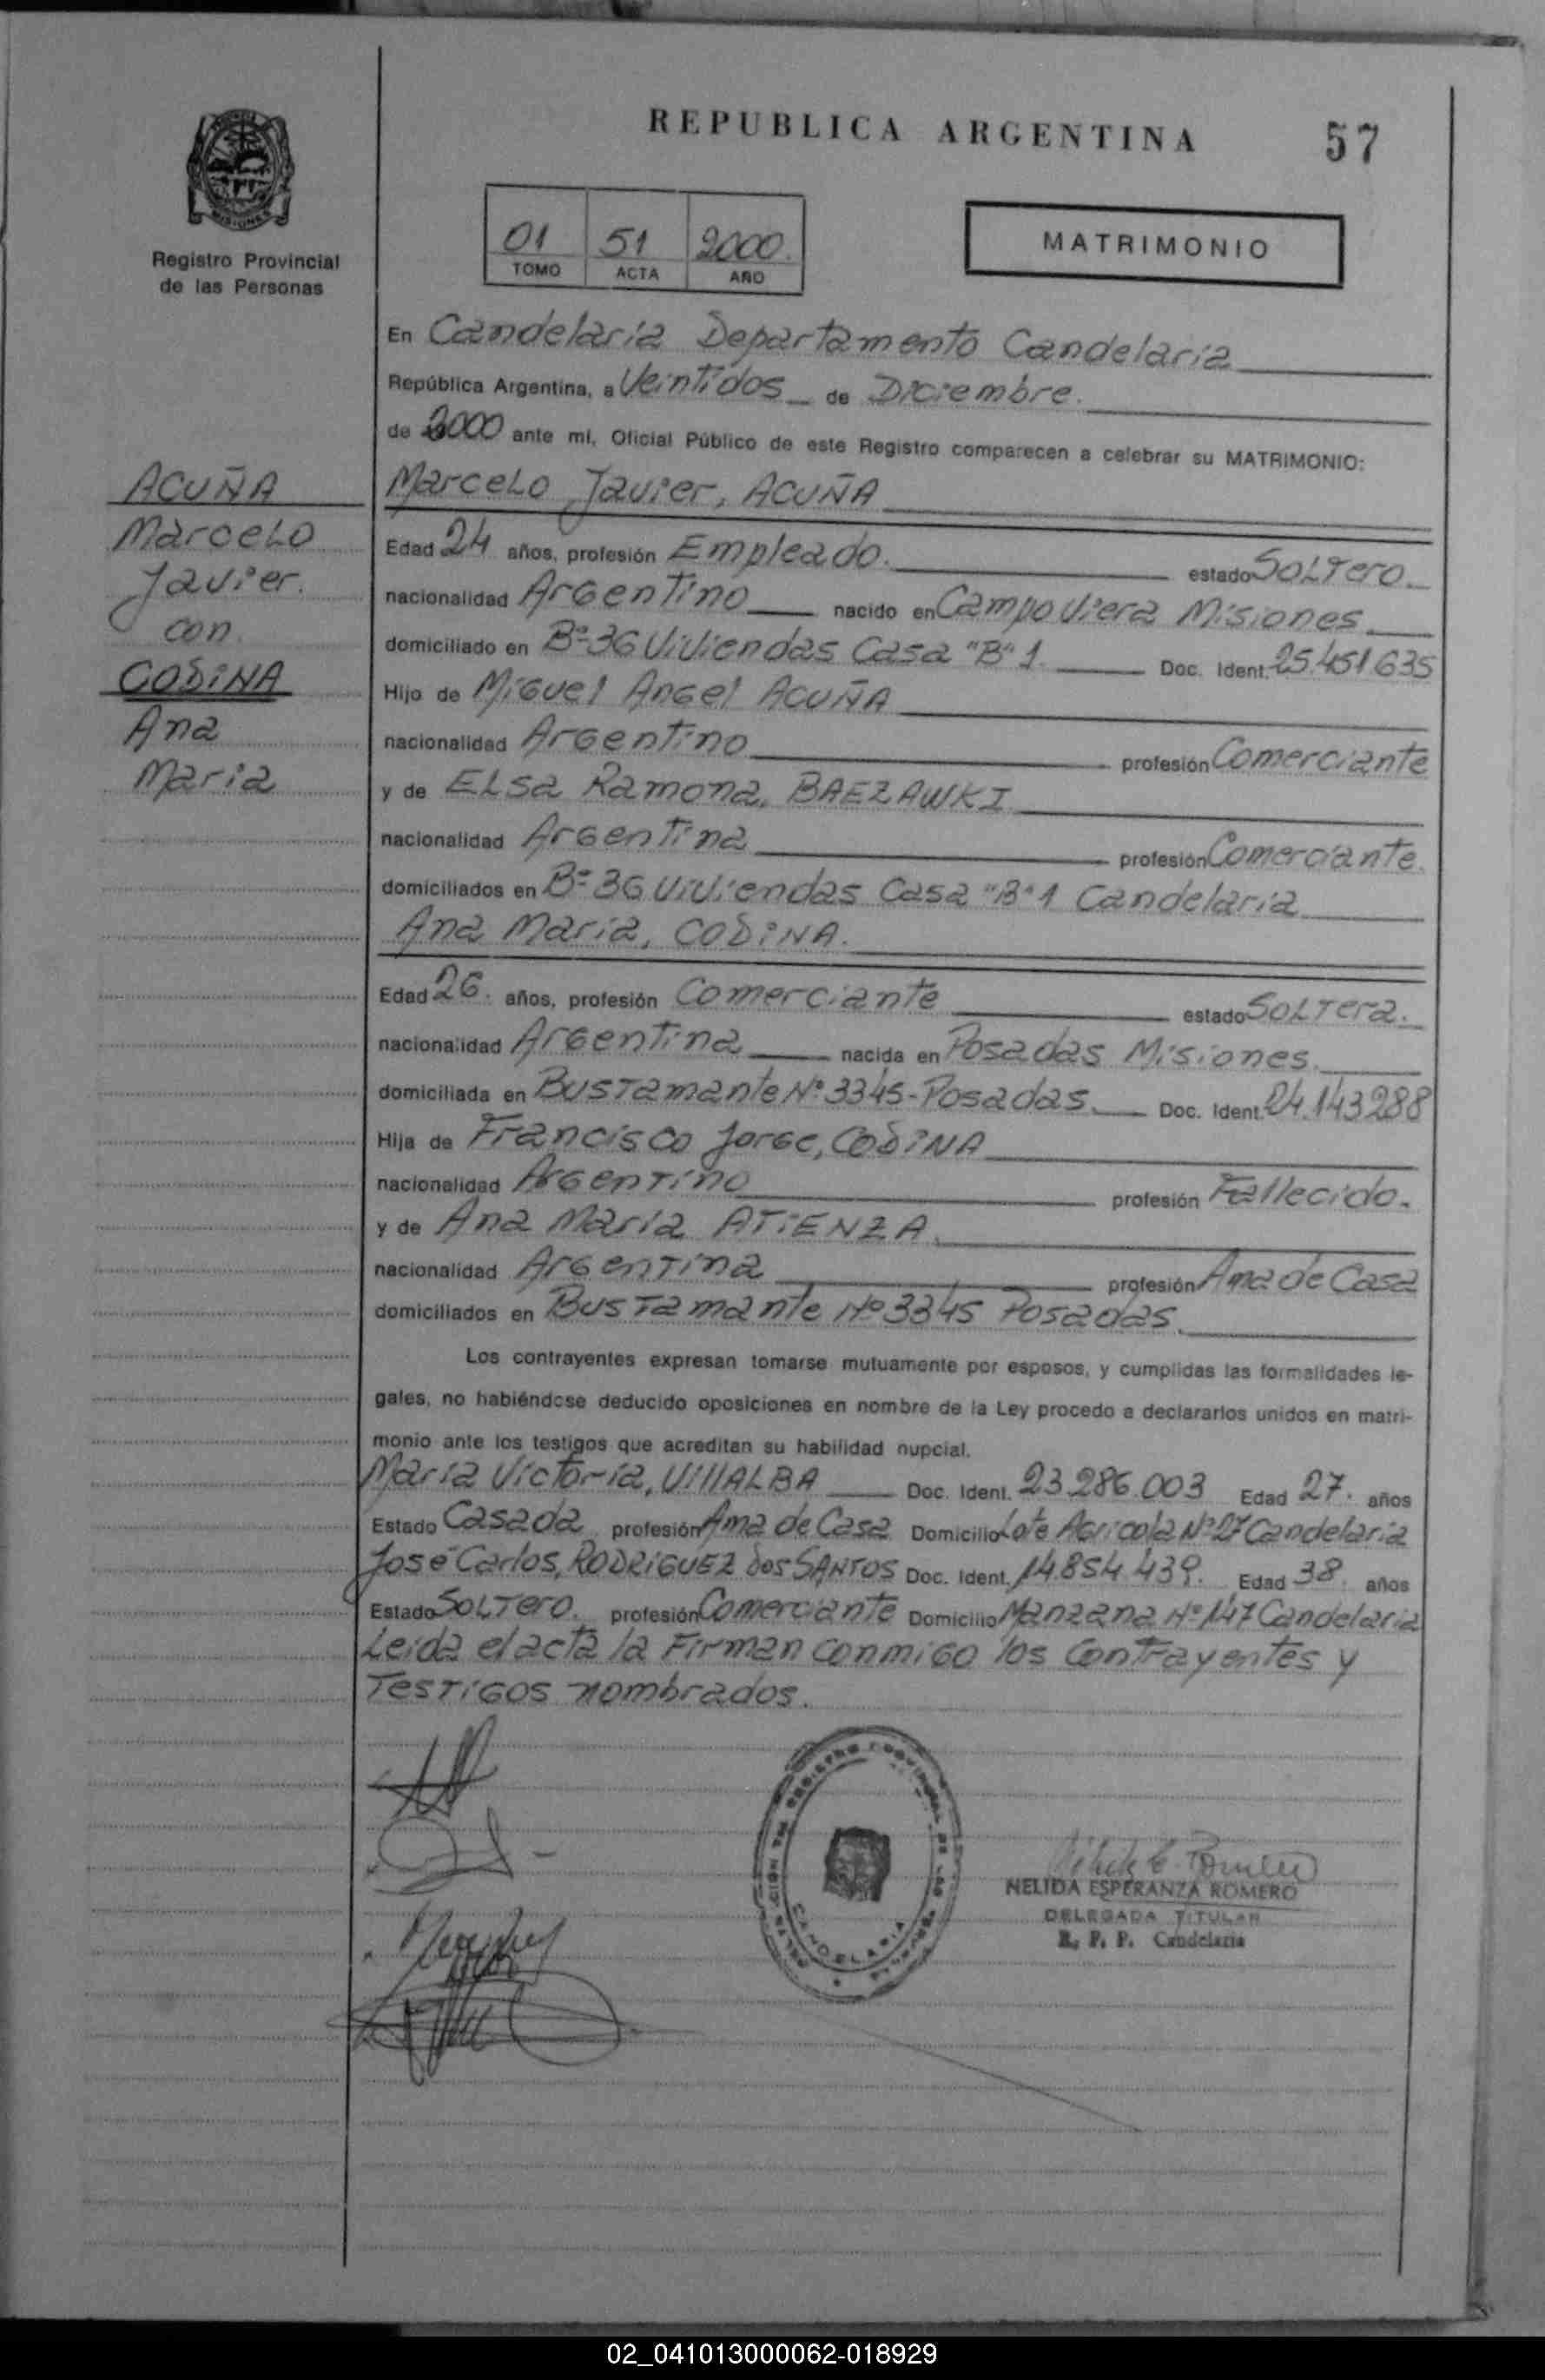 REPUBLICA ARGENTINA
57
Registro Provincial
de las Personas
01 51 2000.
TOMO ACTA AÑO
MATRIMONIO
En Candelaria Departamento Candelaria
República Argentina, a Veintidos de Diciembre.
de 2000 ante mí, Oficial Público de este Registro comparecen a celebrar su MATRIMONIO:
ACUÑA
Marcelo
Javier.
con.
CODINA
Ana
Maria
Marcelo Javier, ACUÑA
Edad 24 años, profesión Empleado. estado Soltero.
nacionalidad Argentino nacido en Campo Viera Misiones
domiciliado en Bº 36 Viviendas Casa "B" 1. Doc. Ident. 25.451.635
Hijo de Miguel Angel ACUÑA
nacionalidad Argentino profesión Comerciante
y de Elsa Ramona, BAEZAWKI
nacionalidad Argentina profesión Comerciante.
domiciliados en Bº 36 Viviendas Casa "B" 1 Candelaria
Ana Maria, CODINA.
Edad 26. años, profesión Comerciante estado Soltera.
nacionalidad Argentina nacida en Posadas Misiones.
domiciliada en Bustamante Nº 3345-Posadas. Doc. Ident. 24.143288
Hija de Francisco Jorge, CODINA
nacionalidad Argentino profesión Fallecido.
y de Ana Maria ATIENZA.
nacionalidad Argentina profesión Ama de Casa
domiciliados en Bustamante Nº 3345 Posadas.
Los contrayentes expresan tomarse mutuamente por esposos, y cumplidas las formalidades le-
gales, no habiéndose deducido oposiciones en nombre de la Ley procedo a declararlos unidos en matri-
monio ante los testigos que acreditan su habilidad nupcial.
Maria Victoria, VillALBA Doc. Ident. 23.286.003 Edad 27. años
Estado Casada profesión Ama de Casa Domicilio Lote Agricola Nº 27 Candelaria
José Carlos, RODRIGUEZ dos SANTOS Doc. Ident. 14.854.439. Edad 38. años
Estado Soltero. profesión Comerciante Domicilio Manzana Nº 147 Candelaria
Leida el acta la Firman conmigo los Contrayentes y
Testigos nombrados.
CANDELARIA
NELIDA ESPERANZA ROMERO
DELEGADA TITULAR
R. P. P. Candelaria
02_041013000062-018929